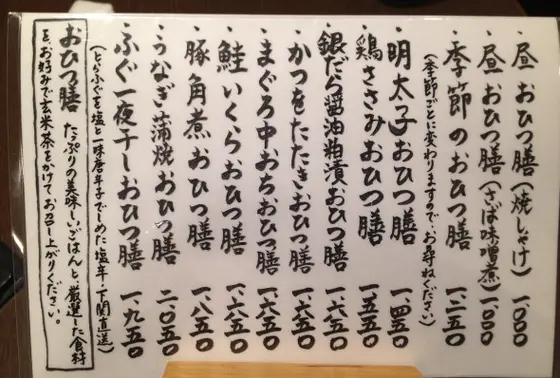 ・昼 おひつ膳(焼しゃけ) 一、〇〇〇
・昼 おひつ膳(さば味噌煮) 一、〇〇〇
・季節のおひつ膳 一、二五〇
(季節ごとに変わりますので、お尋ねください)
・明太子おひつ膳 一、四五〇
・鶏ささみおひつ膳 一、五五〇
・銀だら醤油粕漬おひつ膳 一、六五〇
・かつをたたきおひつ膳 一、六五〇
・まぐろ中おちおひつ膳 一、六五〇
・鮭いくらおひつ膳 一、六五〇
・豚角煮おひつ膳 一、八五〇
・うなぎ蒲焼おひつ膳 二、〇五〇
・ふぐ一夜干しおひつ膳 一、九五〇
(とらふぐを塩と一味唐辛子でしめた塩辛・下関直送)
おひつ膳 たっぷりの美味しいごはんと、厳選した食材
を、お好みで玄米茶をかけてお召し上がりください。